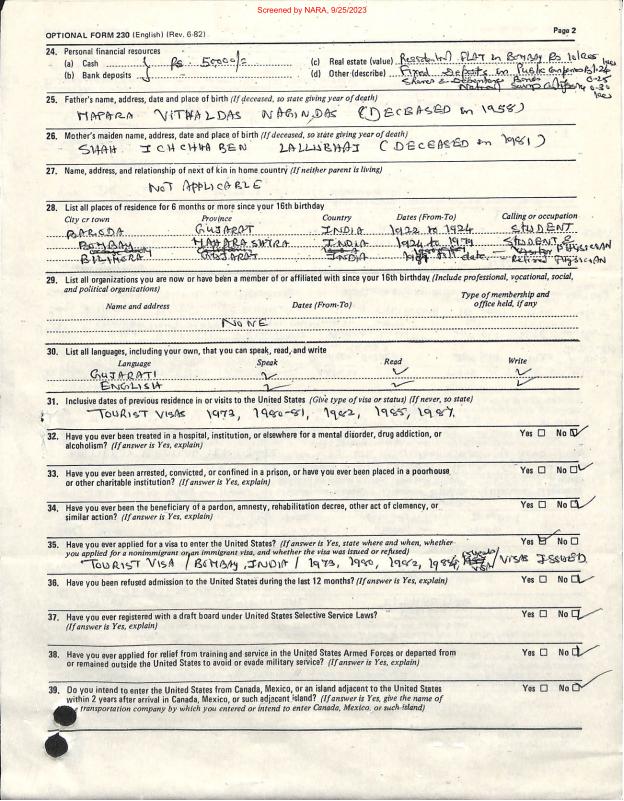 Screened by NARA, 9/25/2023
OPTIONAL FORM 230 (English) (Rev. 6-82)
Page 2
24. Personal financial resources
(a) Cash } Rs. 50000/=
(b) Bank deposits
(c) Real estate (value) Residential FLAT in BOMBAY Rs
(d) Other (describe) Fixed Deposits in Public Companies
Shares & Debentures Bonds
25. Father's name, address, date and place of birth (If deceased, so state giving year of death)
MAPARA VITHALDAS NAGINDAS (DECEASED in 1958)
26. Mother's maiden name, address, date and place of birth (If deceased, so state giving year of death)
SHAH ICHCHHABEN LALLUBHAI (DECEASED in 1981)
27. Name, address, and relationship of next of kin in home country (If neither parent is living)
NOT APPLICABLE
28. List all places of residence for 6 months or more since your 16th birthday
City or town Province Country Dates (From-To) Calling or occupation
BARODA GUJARAT INDIA 1922 to 1924 STUDENT
BOMBAY MAHARASHTRA INDIA 1924 to 1979 STUDENT & PHYSICIAN
BILIMORA GUJARAT INDIA till date. Retired PHYSICIAN
29. List all organizations you are now or have been a member of or affiliated with since your 16th birthday (Include professional, vocational, social,
and political organizations)
Name and address Dates (From-To) Type of membership and
office held, if any
NONE
30. List all languages, including your own, that you can speak, read, and write
Language Speak Read Write
GUJARATI ✓ ✓ ✓
ENGLISH ✓ ✓ ✓
31. Inclusive dates of previous residence in or visits to the United States (Give type of visa or status) (If never, so state)
TOURIST VISAS 1973, 1980-81, 1982, 1985, 1987.
32. Have you ever been treated in a hospital, institution, or elsewhere for a mental disorder, drug addiction, or
alcoholism? (If answer is Yes, explain)
Yes ☐ No ☑
33. Have you ever been arrested, convicted, or confined in a prison, or have you ever been placed in a poorhouse
or other charitable institution? (If answer is Yes, explain)
Yes ☐ No ☑
34. Have you ever been the beneficiary of a pardon, amnesty, rehabilitation decree, other act of clemency, or
similar action? (If answer is Yes, explain)
Yes ☐ No ☑
35. Have you ever applied for a visa to enter the United States? (If answer is Yes, state where and when, whether
you applied for a nonimmigrant or an immigrant visa, and whether the visa was issued or refused)
Yes ☑ No ☐
TOURIST VISA / BOMBAY, INDIA / 1973, 1980, 1982, / VISAS ISSUED
36. Have you been refused admission to the United States during the last 12 months? (If answer is Yes, explain)
Yes ☐ No ☑
37. Have you ever registered with a draft board under United States Selective Service Laws?
(If answer is Yes, explain)
Yes ☐ No ☑
38. Have you ever applied for relief from training and service in the United States Armed Forces or departed from
or remained outside the United States to avoid or evade military service? (If answer is Yes, explain)
Yes ☐ No ☑
39. Do you intend to enter the United States from Canada, Mexico, or an island adjacent to the United States
within 2 years after arrival in Canada, Mexico, or such adjacent island? (If answer is Yes, give the name of
transportation company by which you entered or intend to enter Canada, Mexico, or such island)
Yes ☐ No ☑